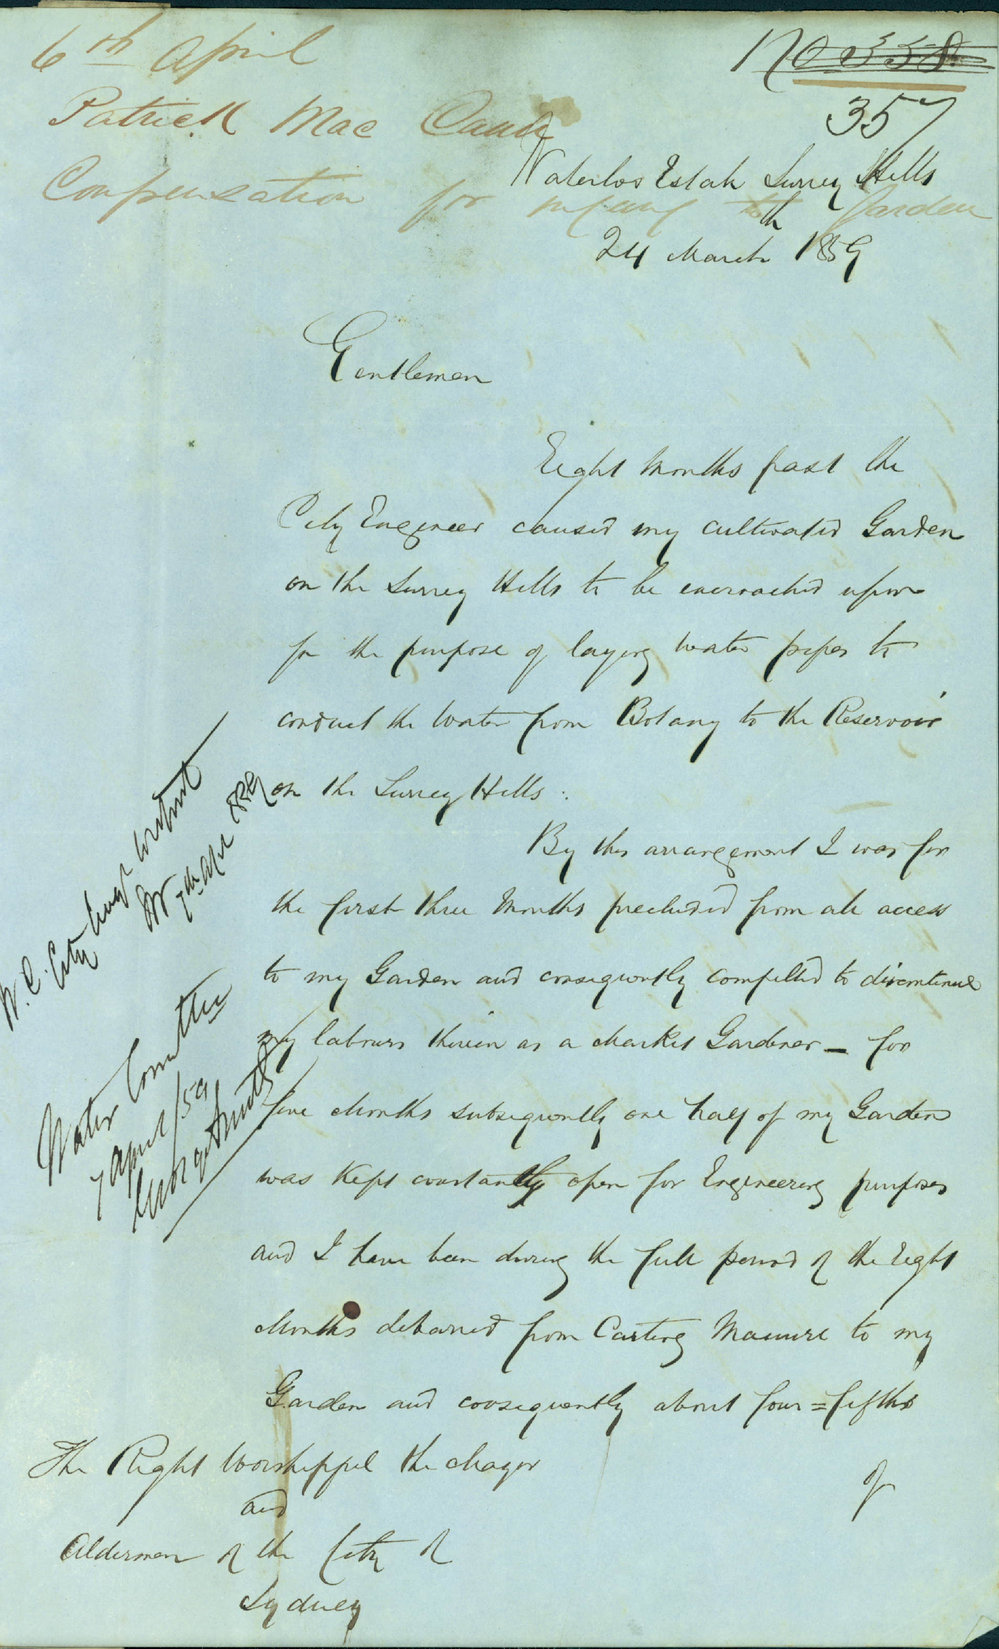 6th April
Patrick Mac
Compensation for injury to Garden
No 358
357
Waterloo Estate Surrey Hills
24th March 1859
Gentlemen
Eight Months past the
City Engineer caused my cultivated Garden
on the Surrey Hills to be encroached upon
for the purpose of laying water pipes to
conduct the Water from Botany to the Reservoir
on the Surrey Hills.
By this arrangement I was for
the first three Months precluded from all access
to my Garden and consequently compelled to discontinue
my labours therein as a Market Gardener — for
five Months subsequently one half of my Garden
was Kept constantly open for Engineering purposes
and I have been during the full period of the Eight
Months debarred from Carting Manure to my
Garden and consequently about four=fifths
of
The Right Worshipful the Mayor
and
Aldermen of the City of
Sydney
W.C. City
7th Apl 1859
Water Committee
7 April /59
George Smith